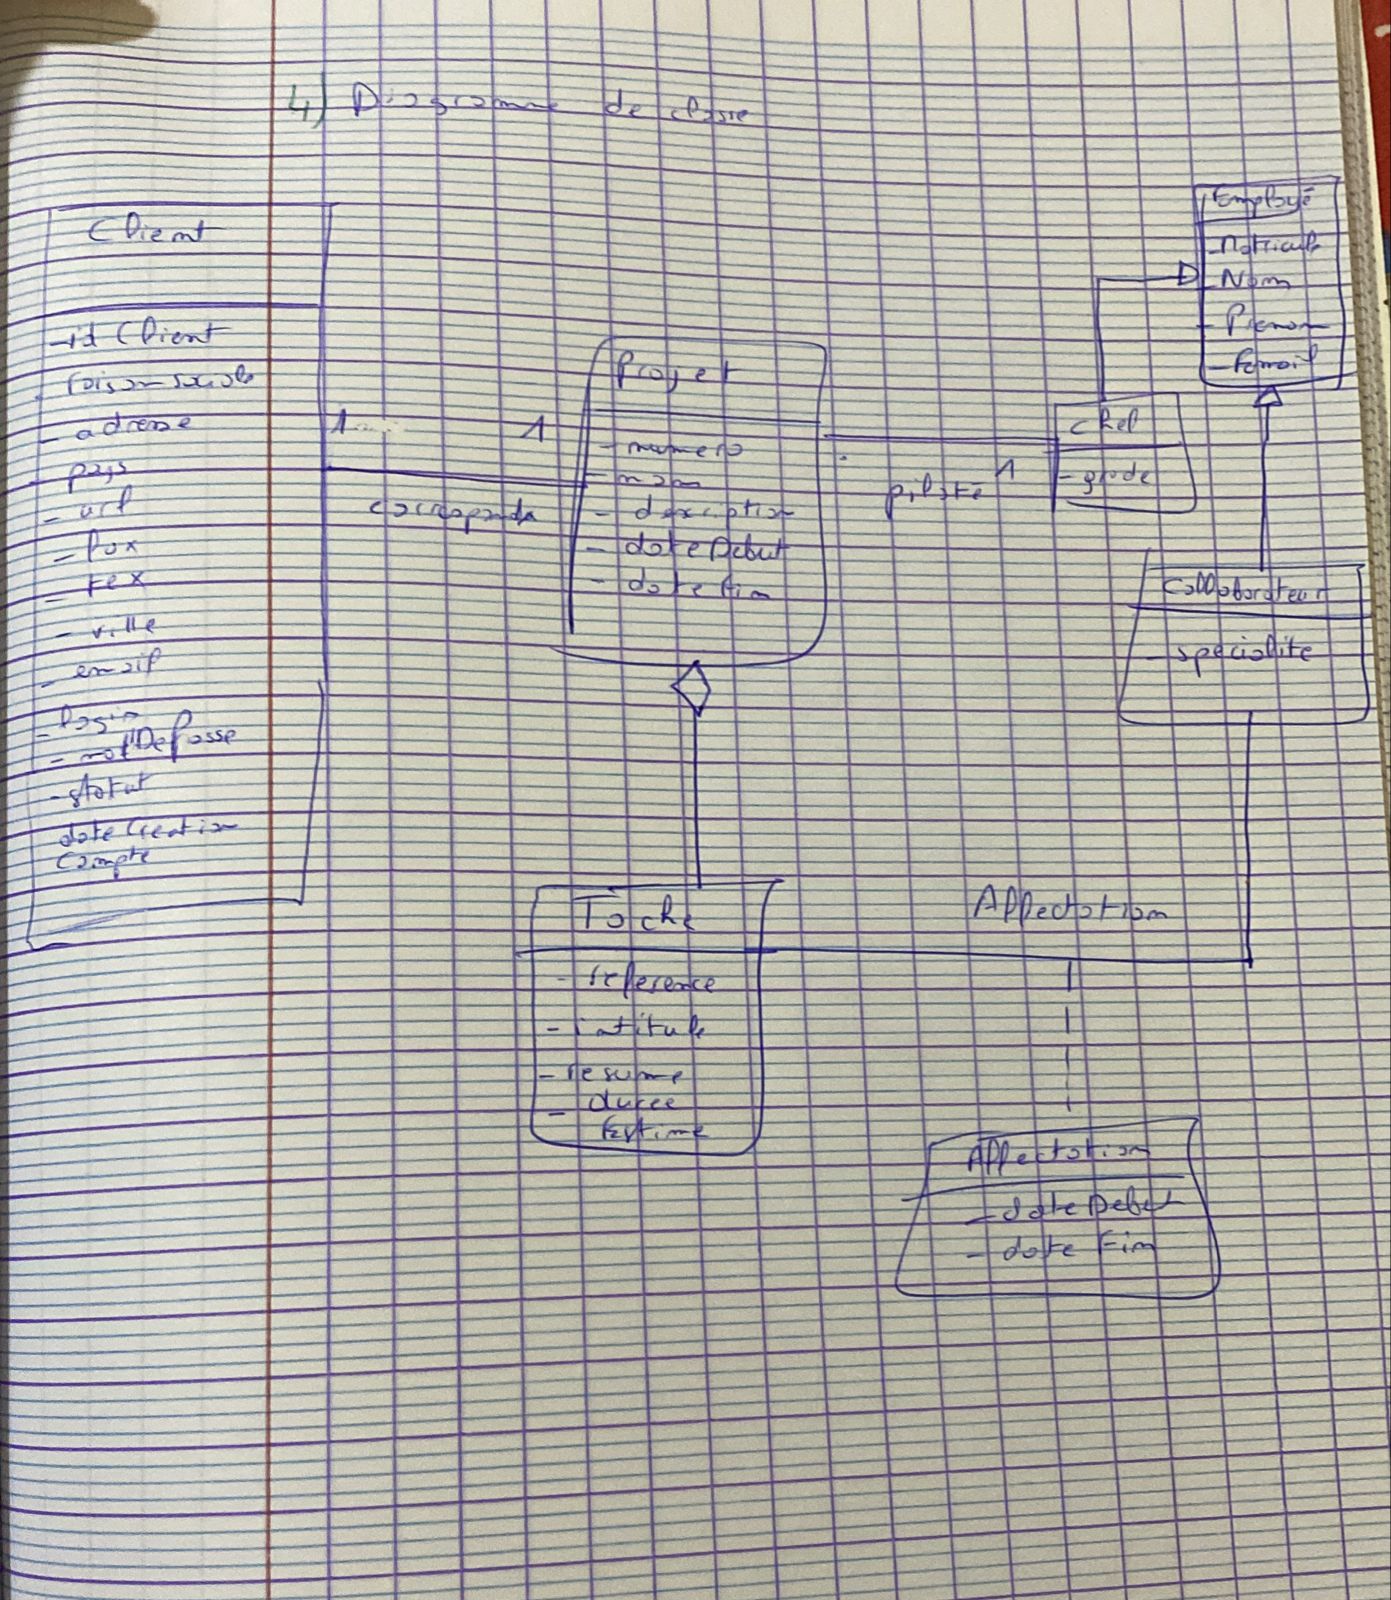 4) Diagramme de classe
Client
- id Client
- raison sociale
- adresse
- pays
- url
- fax
- tex
- ville
- email
- login
- mot De passe
- statut
date Creation
Compte
1..
1
Projet
- numero
- nom
- description
- date Debut
- date fin
pilote 1
Chef
- grade
Employé
- Matricule
- Nom
- Prenom
- Email
Collaborateur
- specialite
Tache
- reference
- intitule
- resume
- duree
Estime
Affectation
Affectation
- date Debut
- date Fin